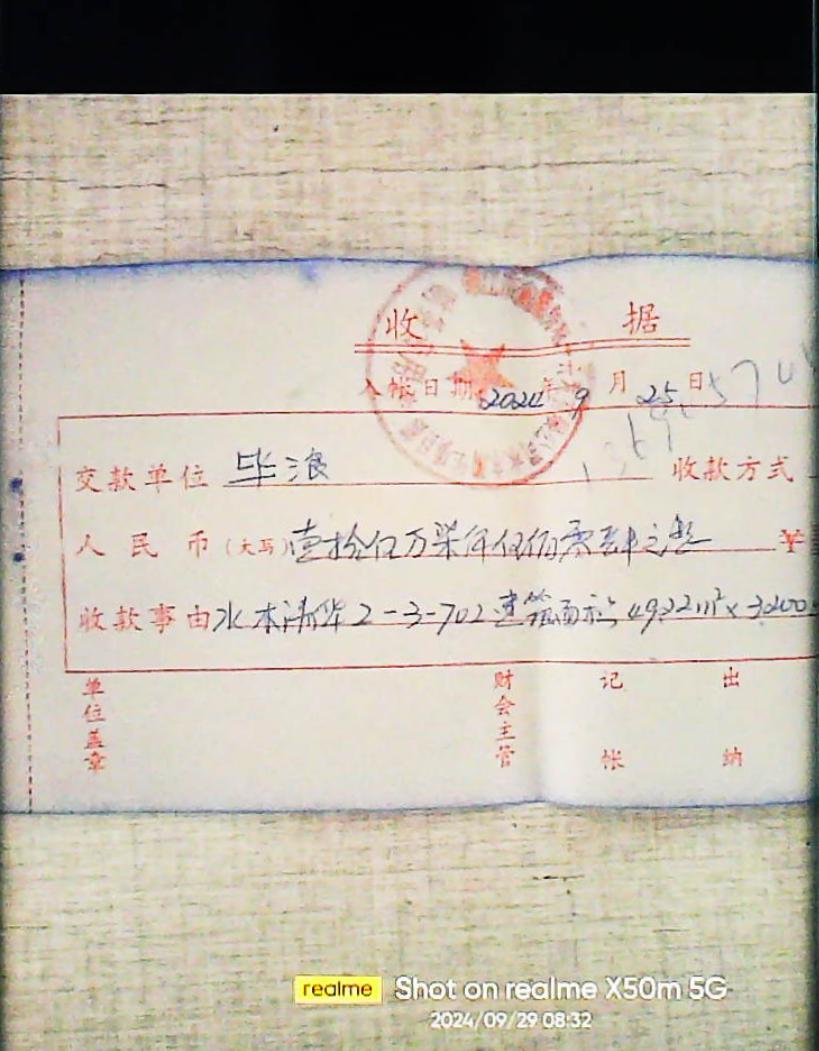 收据
入帐日期2024年9月25日
交款单位 毕浪 收款方式
人民币(大写)壹拾伍万柒仟伍佰零肆元整 ¥
收款事由水木清华2-3-702建筑面积49.22m²×3200
单位盖章 财会主管 记帐 出纳
realme Shot on realme X50m 5G
2024/09/29 08:32